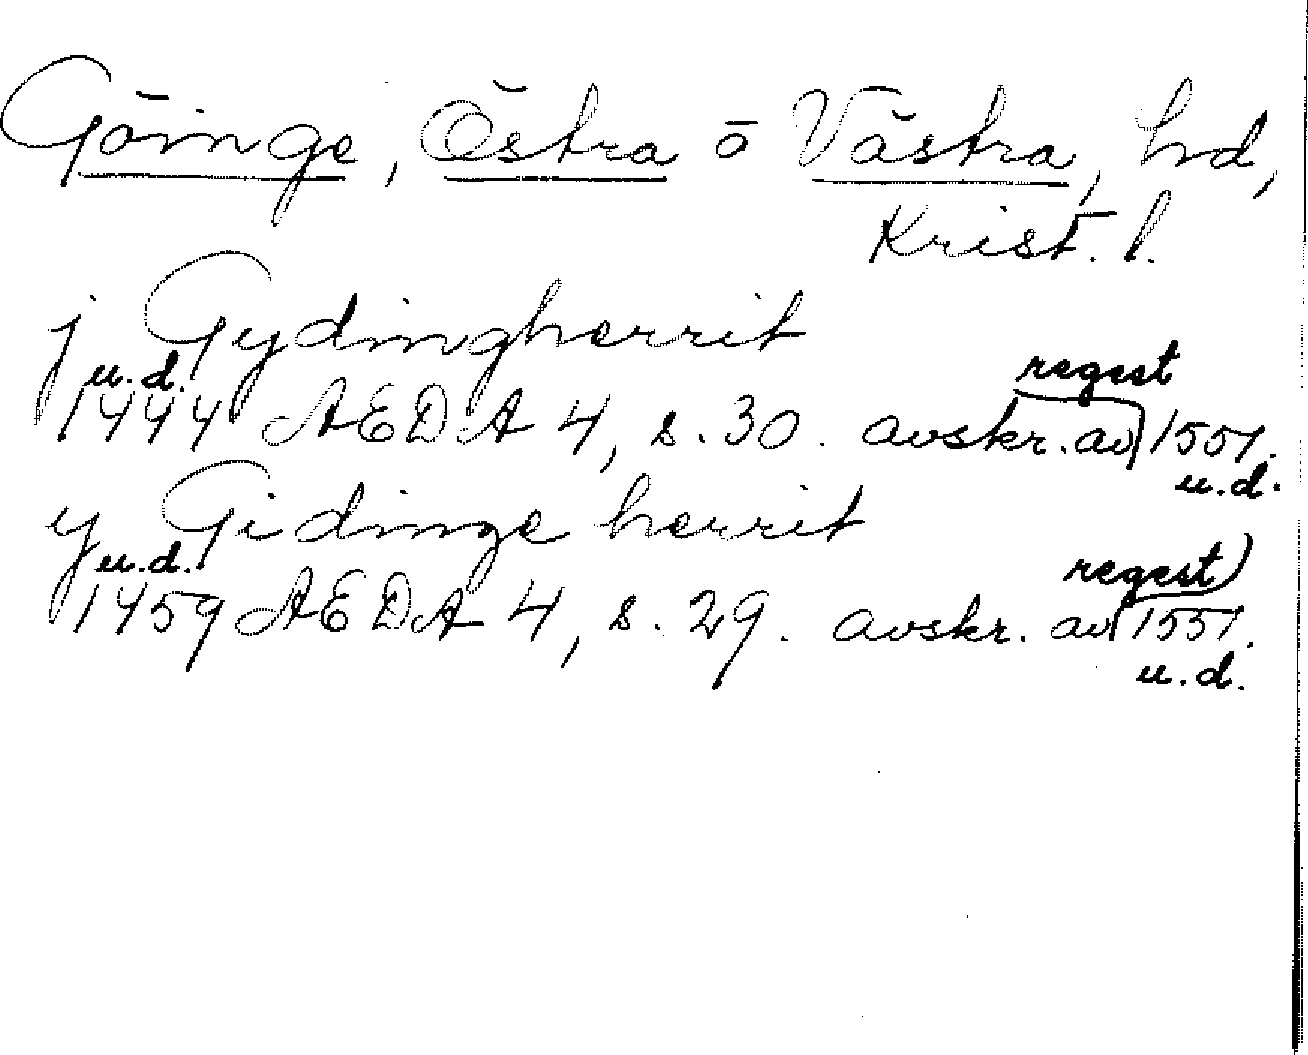 Göinge, Östra o Västra, hd,
Krist. l.
j Gydingherrit
u.d. regest
1444 AEDA 4, s. 30. avskr. av 1551.
u.d.
y Gidinge herrit
u.d. regest
1459 AEDA 4, s. 29. avskr. av 1551.
u.d.